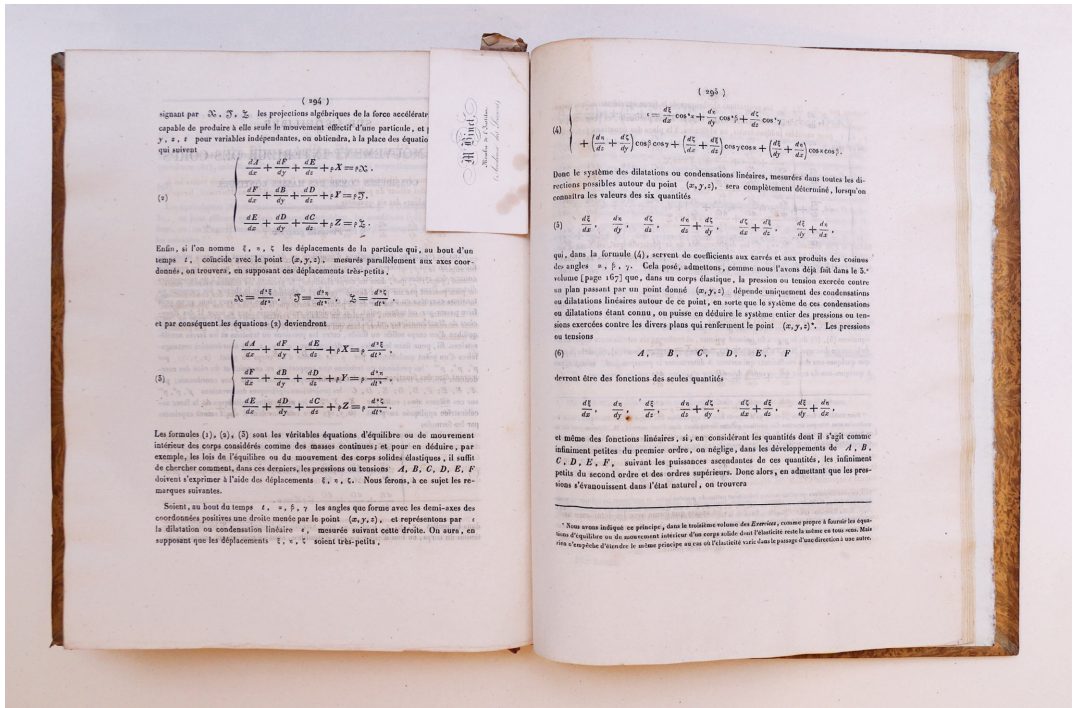 ( 294 )
signant par 𝔛, 𝔍, 𝔷, les projections algébriques de la force accélératr
capable de produire à elle seule le mouvement effectif d'une particule, et
y, z, t pour variables indépendantes, on obtiendra, à la place des équatio
qui suivent
dA/dx + dF/dy + dE/dz + ρX = ρ𝔛.
(2) dF/dx + dB/dy + dD/dz + ρY = ρ𝔍.
dE/dx + dD/dy + dC/dz + ρZ = ρ𝔷.
Enfin, si l'on nomme ξ, η, ζ les déplacements de la particule qui, au bout d'un
temps t, coïncide avec le point (x, y, z), mesurés parallèlement aux axes coor-
donnés, on trouvera, en supposant ces déplacements très-petits,
𝔛 = d²ξ/dt², 𝔍 = d²η/dt², 𝔷 = d²ζ/dt²,
et par conséquent les équations (2) deviendront
dA/dx + dF/dy + dE/dz + ρX = ρ d²ξ/dt²,
(3) dF/dx + dB/dy + dD/dz + ρY = ρ d²η/dt²,
dE/dx + dD/dy + dC/dz + ρZ = ρ d²ζ/dt².
Les formules (1), (2), (3) sont les véritables équations d'équilibre ou de mouvement
intérieur des corps considérés comme des masses continues; et pour en déduire, par
exemple, les lois de l'équilibre ou du mouvement des corps solides élastiques, il suffit
de chercher comment, dans ces derniers, les pressions ou tensions A, B, C, D, E, F
doivent s'exprimer à l'aide des déplacements ξ, η, ζ. Nous ferons, à ce sujet les re-
marques suivantes.
Soient, au bout du temps t, α, β, γ les angles que forme avec les demi-axes des
coordonnées positives une droite menée par le point (x, y, z), et représentons par ε
la dilatation ou condensation linéaire ε, mesurée suivant cette droite. On aura, en
supposant que les déplacements ξ, η, ζ soient très-petits,
M. Binet
Membre de l'Institut,
( 295 )
ε = dξ/dx cos²α + dη/dy cos²β + dζ/dz cos²γ
(4) + (dη/dz + dζ/dy) cosβ cosγ + (dζ/dx + dξ/dz) cosγ cosα + (dξ/dy + dη/dx) cosα cosβ.
Donc le système des dilatations ou condensations linéaires, mesurées dans toutes les di-
rections possibles autour du point (x, y, z), sera complètement déterminé, lorsqu'on
connaîtra les valeurs des six quantités
(5) dξ/dx, dη/dy, dζ/dz, dη/dz + dζ/dy, dζ/dx + dξ/dz, dξ/dy + dη/dx,
qui, dans la formule (4), servent de coefficients aux carrés et aux produits des cosinus
des angles α, β, γ. Cela posé, admettons, comme nous l'avons déjà fait dans le 3.e
volume [page 167] que, dans un corps élastique, la pression ou tension exercée contre
un plan passant par un point donné (x, y, z) dépende uniquement des condensations
ou dilatations linéaires autour de ce point, en sorte que le système de ces condensations
ou dilatations étant connu, on puisse en déduire le système entier des pressions ou ten-
sions exercées contre les divers plans qui renferment le point (x, y, z)*. Les pressions
ou tensions
(6) A, B, C, D, E, F
devront être des fonctions des seules quantités
dξ/dx, dη/dy, dζ/dz, dη/dz + dζ/dy, dζ/dx + dξ/dz, dξ/dy + dη/dx,
et même des fonctions linéaires, si, en considérant les quantités dont il s'agit comme
infiniment petites du premier ordre, on néglige, dans les développements de A, B,
C, D, E, F, suivant les puissances ascendantes de ces quantités, les infiniment
petits du second ordre et des ordres supérieurs. Donc alors, en admettant que les pres-
sions s'évanouissent dans l'état naturel, on trouvera
* Nous avons indiqué ce principe, dans le troisième volume des Exercices, comme propre à fournir les équa-
tions d'équilibre ou de mouvement intérieur d'un corps solide dont l'élasticité reste la même en tous sens. Mais
rien n'empêche d'étendre le même principe au cas où l'élasticité varie dans le passage d'une direction à une autre.